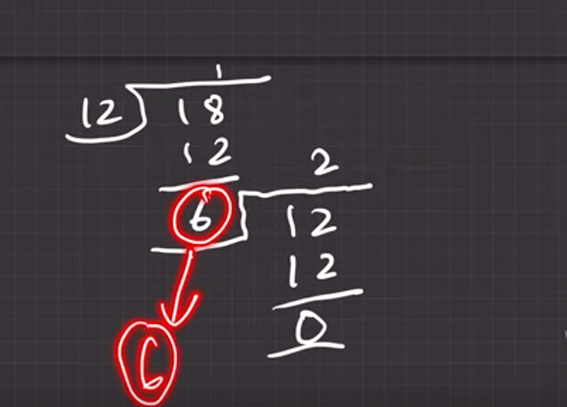 1
12 18
12
2
6 12
12
0
6